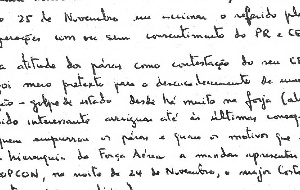 o 25 de Novembro em accionar o referido pla
perações com ou sem consentimento do PR e CE
a atitude dos páras como contestação do seu CE
oi mero pretexto para o desencadeamento de um
ção - golpe de estado desde há muito na forja (al
ido interessante averiguar até às últimas conseq
quem empurrou os páras e quais os motivos que
hierarquia da Força Aérea a mandar apresentar
OPCON, na noite de 24 de Novembro, o major Costa